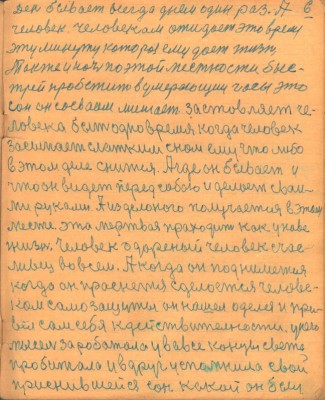 ден бывает всегда днём один раз. А 6
человек человекам отидает это время
эту минуту которая ему дает жизн
Также и ноч по этой местности быс-
трей пробетить в умерающии часы это
сон он со всеми мешает заставляет че-
ловека быт одно время когда человек
засыпает сладким сном ему что либо
в этом деле снится. А где он бывает и
что он видет перед собою и делает сваи-
ми руками А изделоного получается в этом
месте эта мертвая праходит как у наве
жизн. Человек одареный человек счас-
ливец во всем. А когда он поднимется
когда он праснется сделоется челове-
кам самозащиты он нашел оделся и при-
вёл сам себя к действительности, у него
мысль заработала и ва все концы света
пробитала и вдруг успомнила свой
приснившейся сон. какой он был